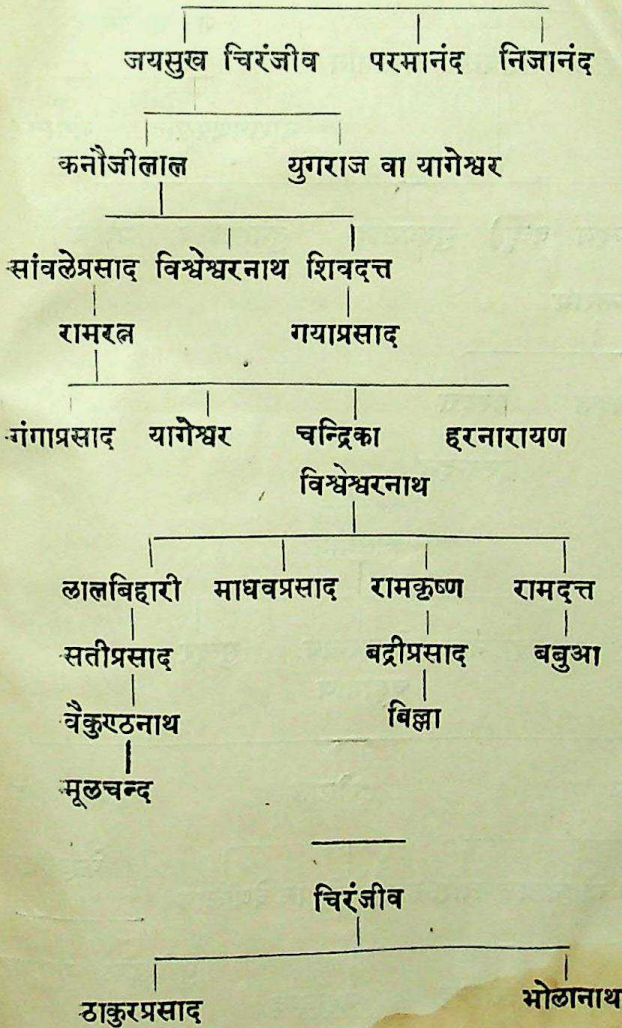 जयसुख चिरंजीव परमानंद निजानंद
कनौजीलाल युगराज वा यागेश्वर
सांवलेप्रसाद विश्वेश्वरनाथ शिवदत्त
रामरत्न गयाप्रसाद
गंगाप्रसाद यागेश्वर चन्द्रिका हरनारायण
विश्वेश्वरनाथ
लालबिहारी माधवप्रसाद रामकृष्ण रामदत्त
सतीप्रसाद बद्रीप्रसाद बबुआ
वैकुण्ठनाथ बिल्ला
मूलचन्द
चिरंजीव
ठाकुरप्रसाद भोलानाथ